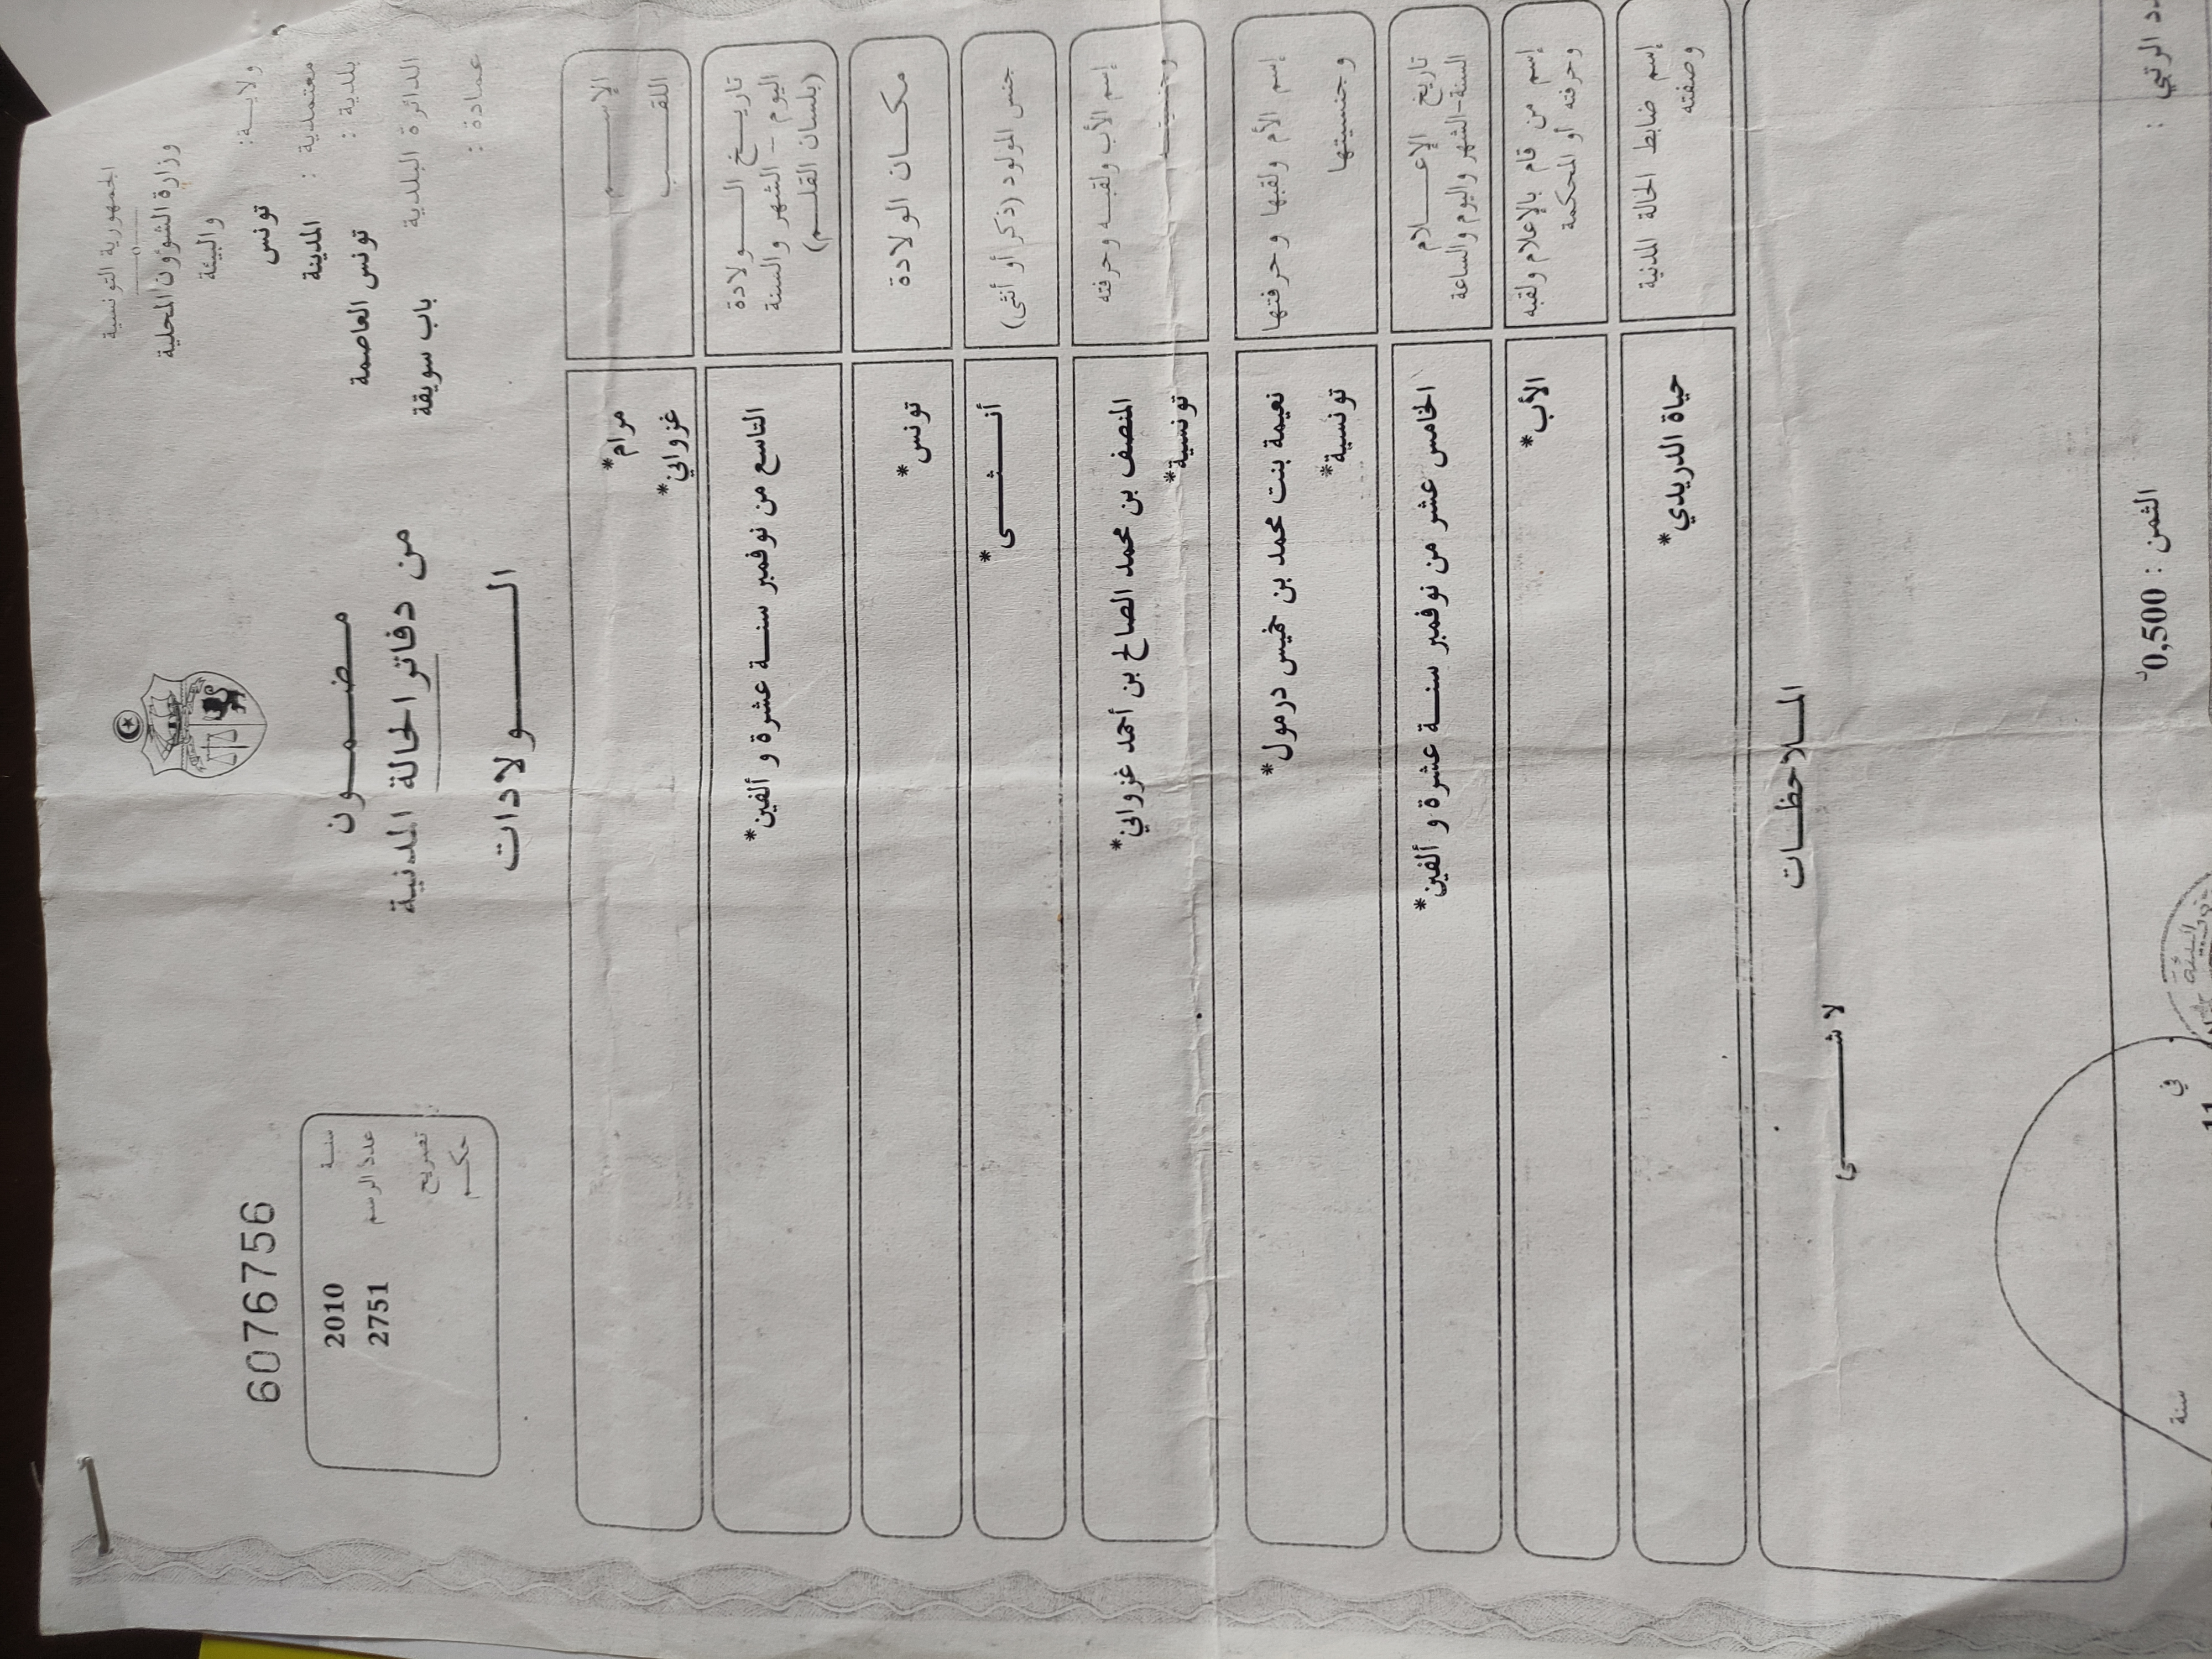 الجمهورية التونسية
وزارة الشؤون المحلية
والبيئة
ولاية: تونس
معتمدية : المدينة
بلدية : تونس العاصمة
الدائرة البلدية باب سويقة
عمادة :
مضمون
من دفاتر الحالة المدنية
الولادات
6076756
سنة 2010
عدد الرسم 2751
تصريح
حكم
الإسم مرام*
اللقب غزواني*
تاريخ الولادة
اليوم - الشهر والسنة
(بلسان القلم)
التاسع من نوفمبر سنة عشرة و ألفين*
مكان الولادة تونس*
جنس المولود (ذكر أو أنثى) أنثى*
إسم الأب ولقبه وحرفته المنصف بن محمد الصالح بن أحمد غزواني*
وجنسيته تونسية*
إسم الأم ولقبها وحرفتها نعيمة بنت محمد بن خميس درمول*
وجنسيتها تونسية*
تاريخ الإعلام
السنة-الشهر واليوم والساعة
الخامس عشر من نوفمبر سنة عشرة و ألفين*
إسم من قام بالإعلام ولقبه
وحرفته أو المحكمة
الأب*
إسم ضابط الحالة المدنية
وصفته
حياة الدريدي*
الملاحظات
لا شي
الرتبي :
الثمن : 0,500د
في 11
سنة